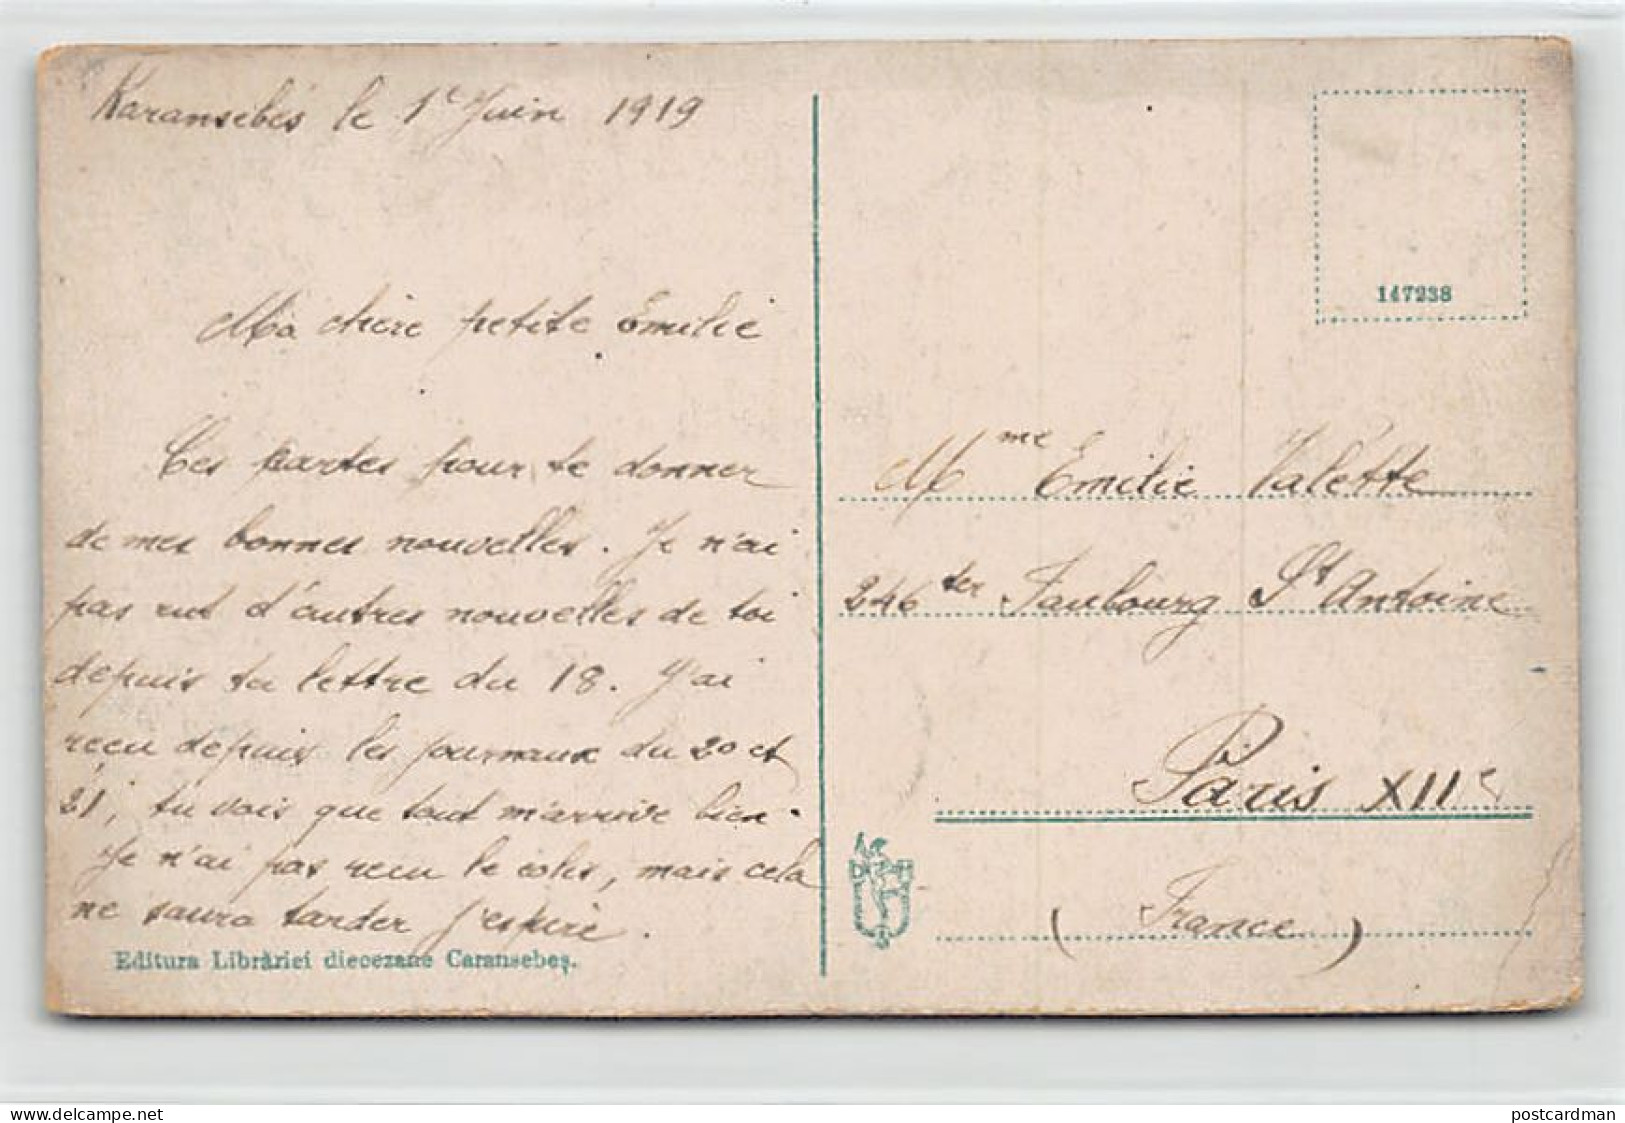 Karansebés le 1e Juin 1919
Ma chère petite Émilie
Ces cartes pour te donner
de mes bonnes nouvelles. Je n'ai
pas eut d'autres nouvelles de toi
depuis ta lettre du 18. J'ai
reçu depuis les journaux du 20 et
21, tu vois que tout m'arrive bien.
Je n'ai pas recu le colis, mais cela
ne saura tarder j'espère.
Editura Librăriei diecezane Caransebeş.
147238
Mme Émilie Valette
246 ter Faubourg St Antoine
Paris XIIe
(France)
delcampe.net
postcardman